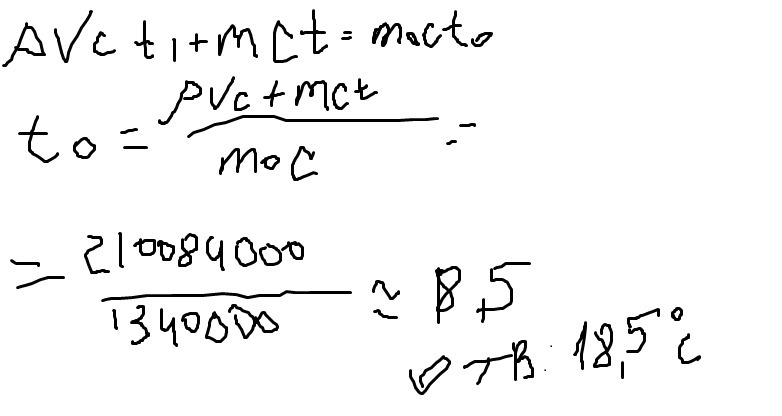 ρVc t₁ + mct = m₀ct₀
t₀ = ρVc + mct / m₀c =
= 210084000 / 1340000 ≈ 8,5
✓ ОТВ: 18,5°c